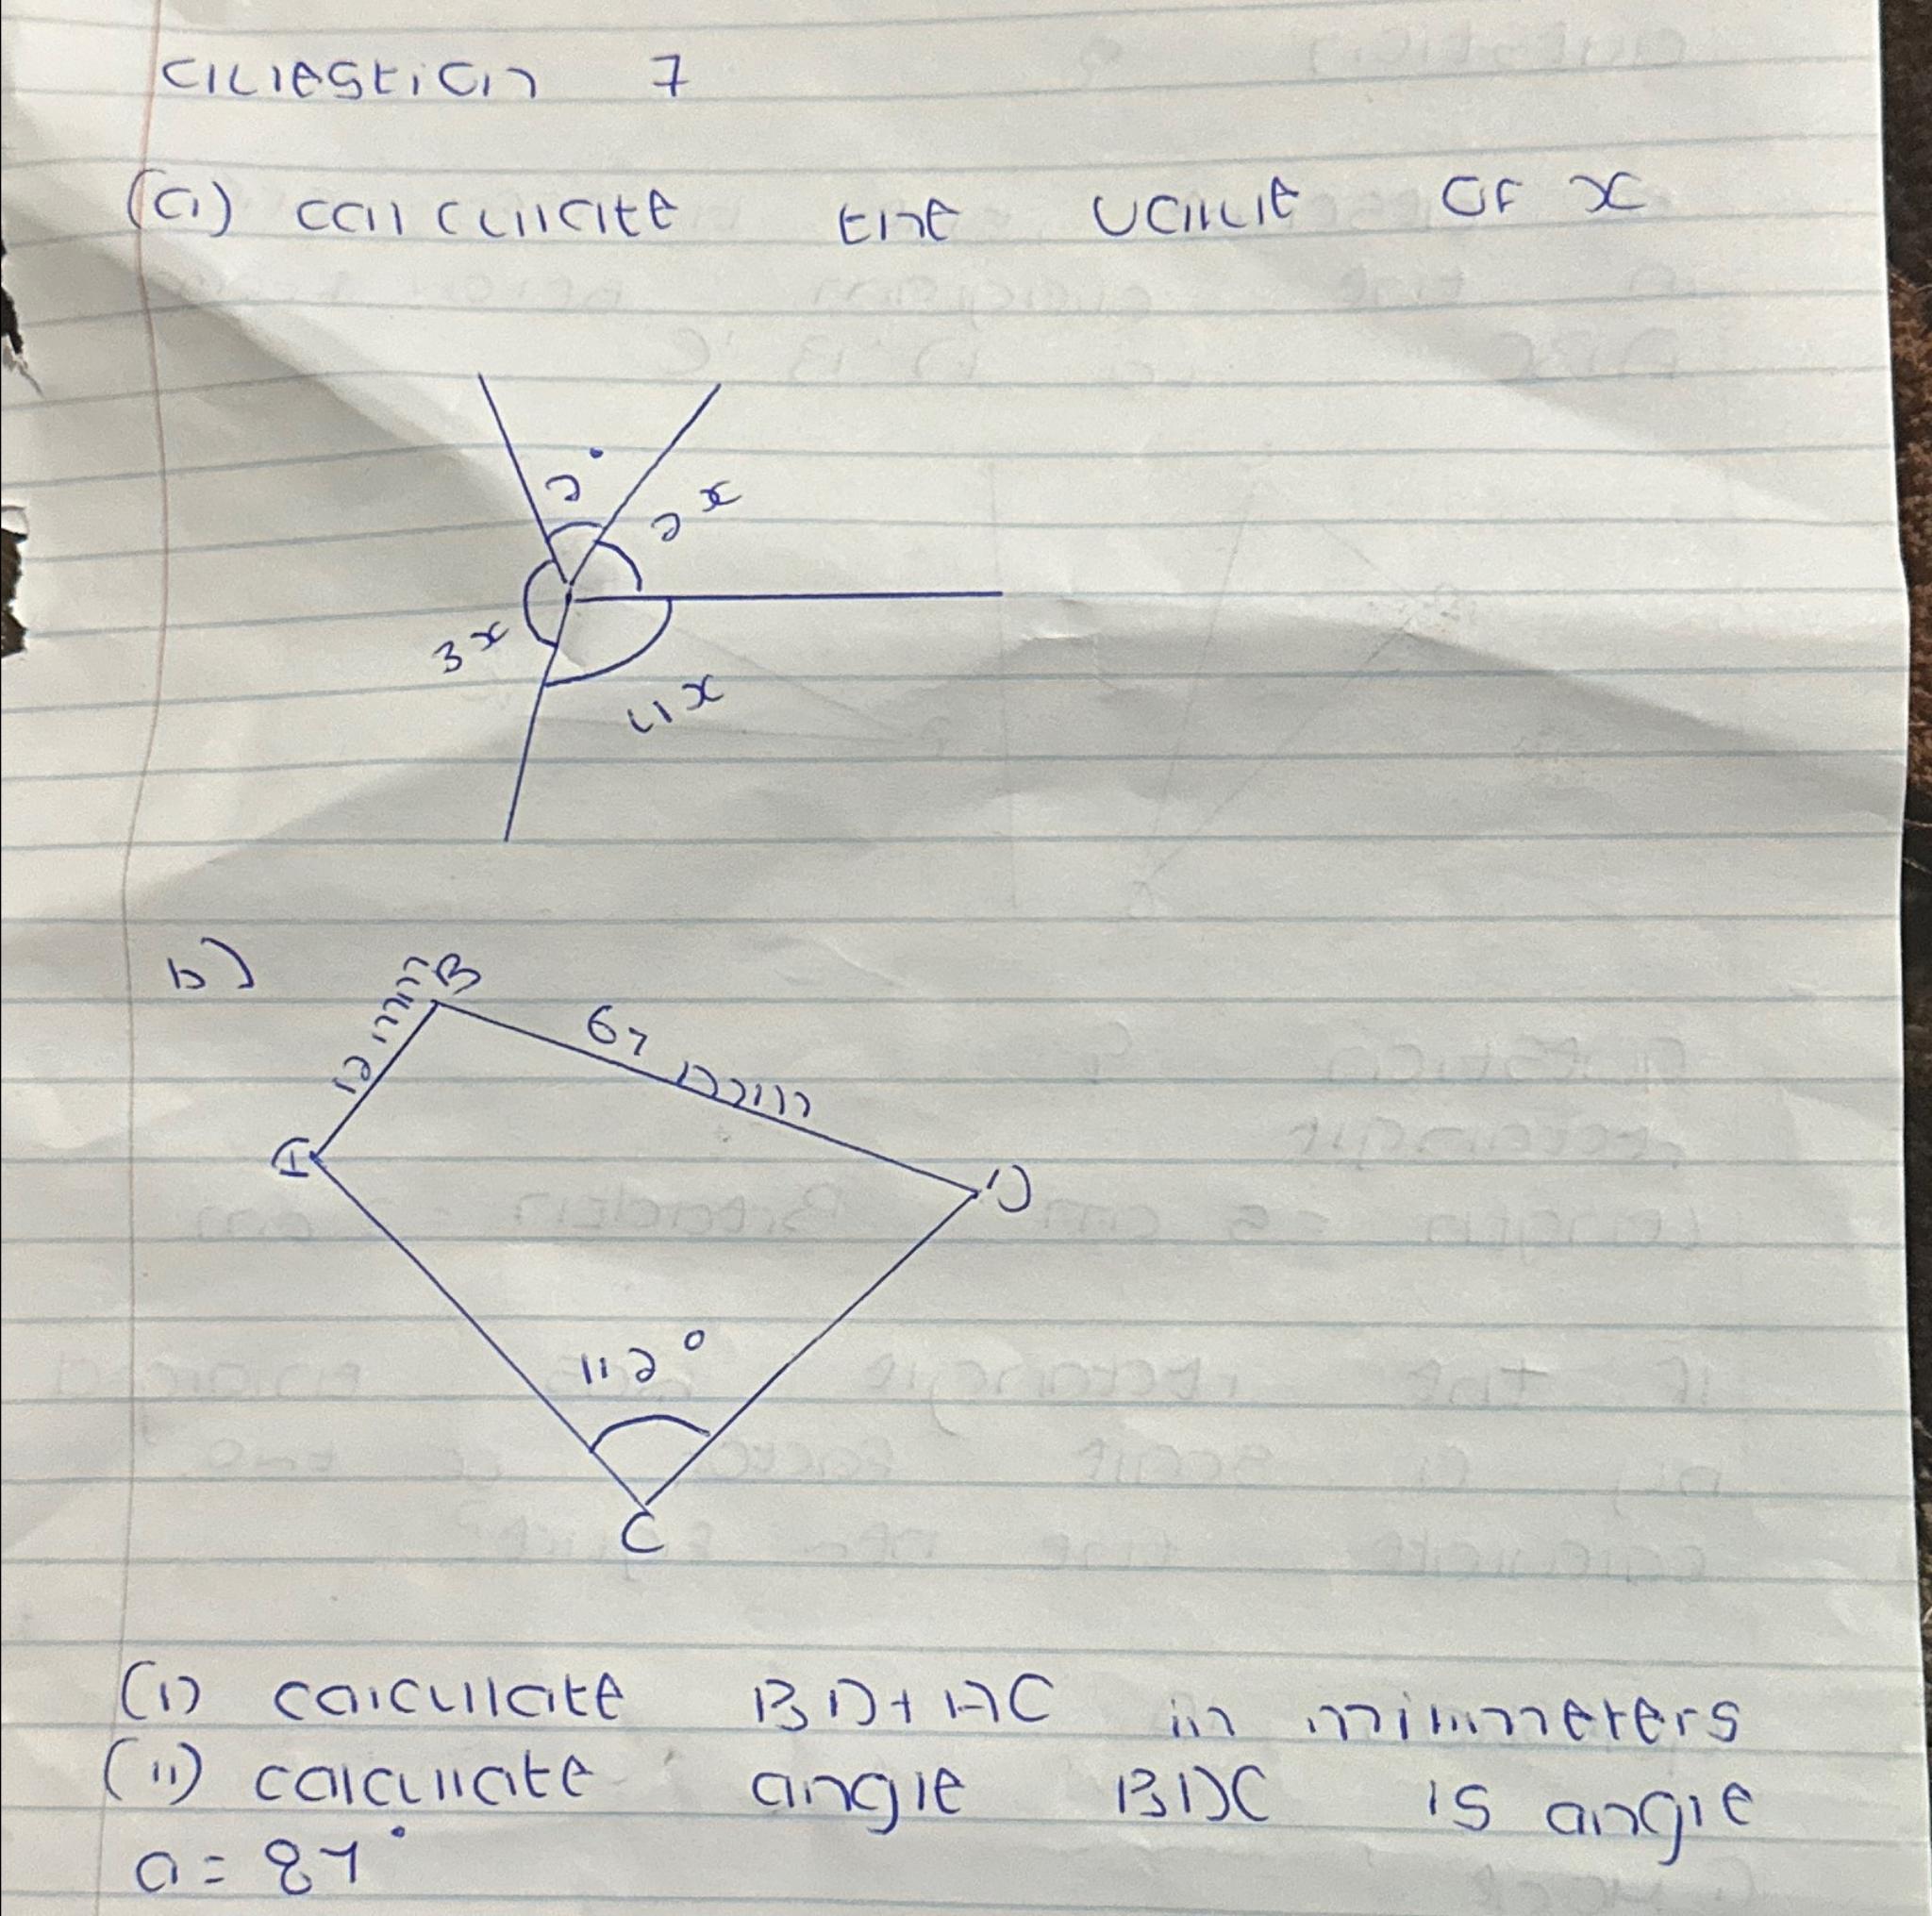 Question 7
(a) calculate the value of x
2°
2x
3x
4x
b)
B
12 mm
67 mm
A
D
112°
C
(i) calculate BD+AC in mimmeters
(ii) calculate angle BDC is angle
a= 87°